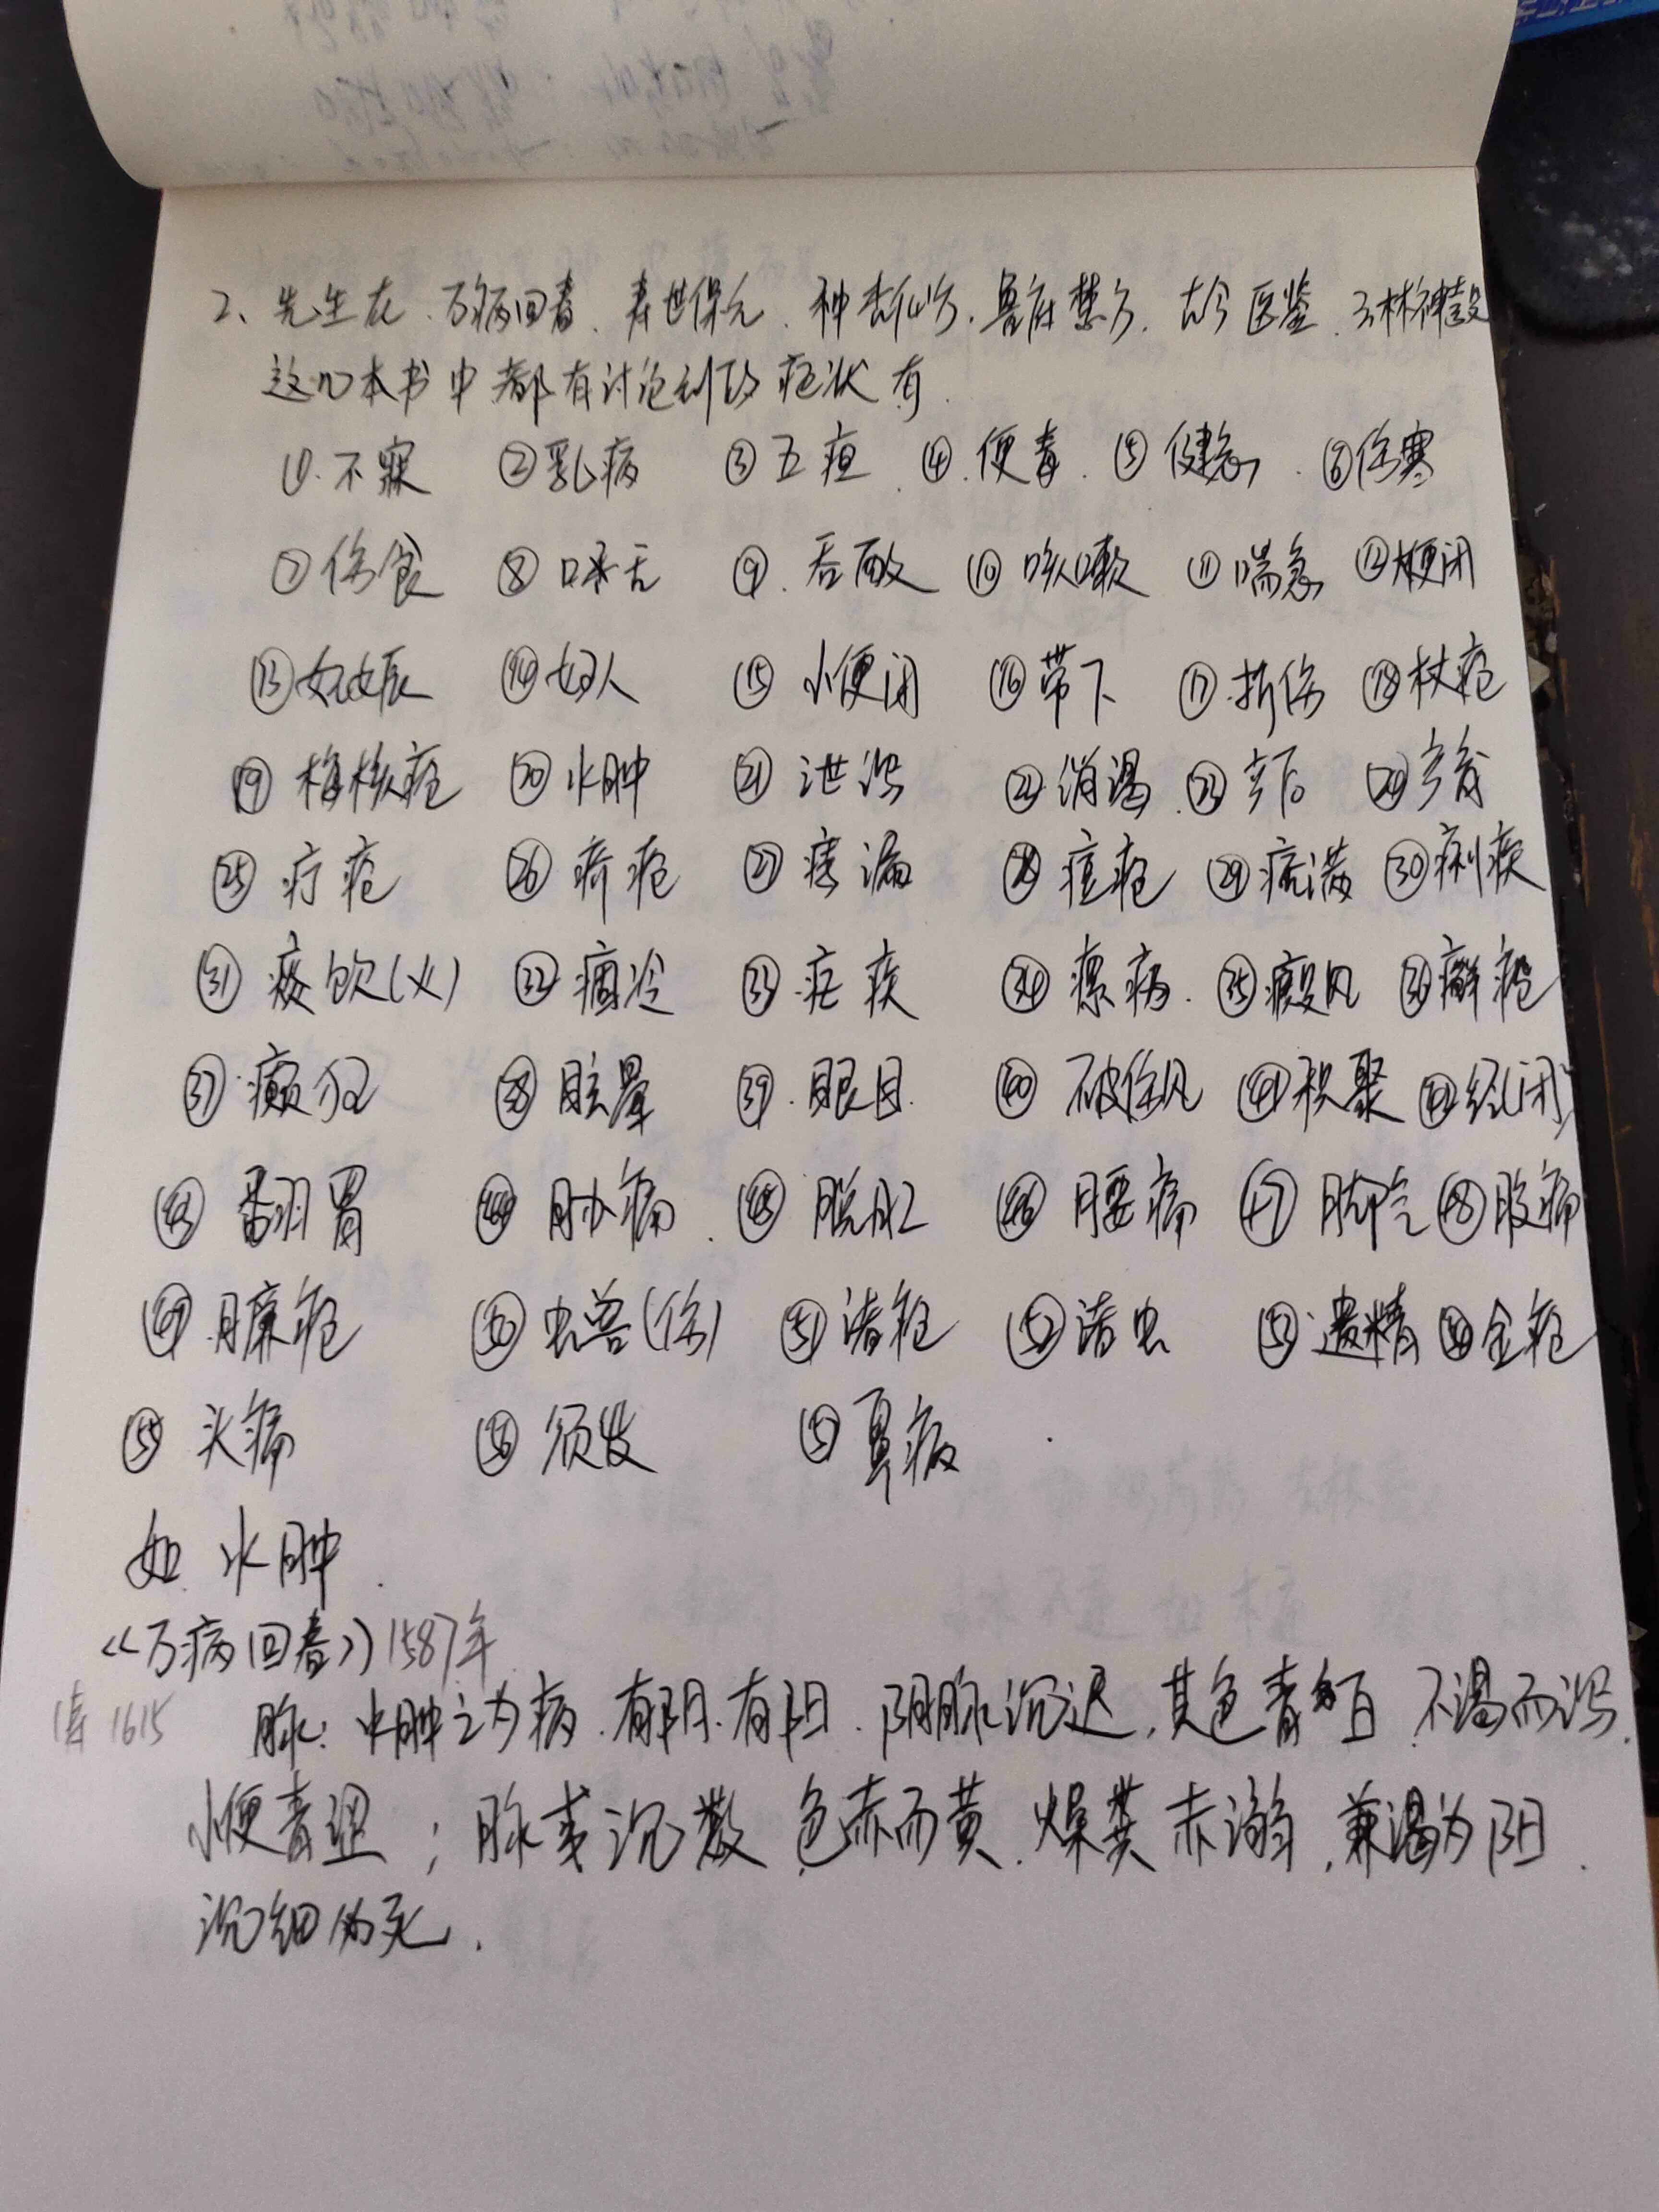 2、先生在、万病回春、寿世保元、种杏仙方、鲁府禁方、古今医鉴、云林神彀
这几本书中都有讨论到的症状有
①.不寐 ②乳病 ③五疸 ④.便毒 ⑤健忘 ⑥伤寒
⑦伤食 ⑧口舌 ⑨.吞酸 ⑩咳嗽 ⑪喘急 ⑫大便闭
⑬妊娠 ⑭妇人 ⑮小便闭 ⑯带下 ⑰折伤 ⑱杖疮
⑲梅核疮 ⑳水肿 ㉑泄泻 ㉒消渴 ㉓产后 ㉔产育
㉕疔疮 ㉖疥疮 ㉗痔漏 ㉘痘疮 ㉙痞满 ㉚痢疾
㉛痰饮(火) ㉜痼冷 ㉝疟疾 ㉞瘰疬 ㉟癜风 ㊱癣疮
㊲癫狂 ㊳眩晕 ㊴.眼目 ㊵破伤风 ㊶积聚 ㊷经闭
㊸翻胃 ㊹胁痛 ㊺脱肛 ㊻腰痛 ㊼脚气 ㊽腹痛
㊾臁疮 ㊿虫兽(伤) 51诸疮 52诸虫 53遗精 54金疮
55头痛 56须发 57鼻病
如 水肿
《万病回春》1587年
寿 1615 脉:水肿之为病.有阴.有阳.阴脉沉迟,其色青白 不渴而泻.
小便青涩;脉或沉数 色赤而黄.燥粪赤溺,兼渴为阳.
沉细为死.